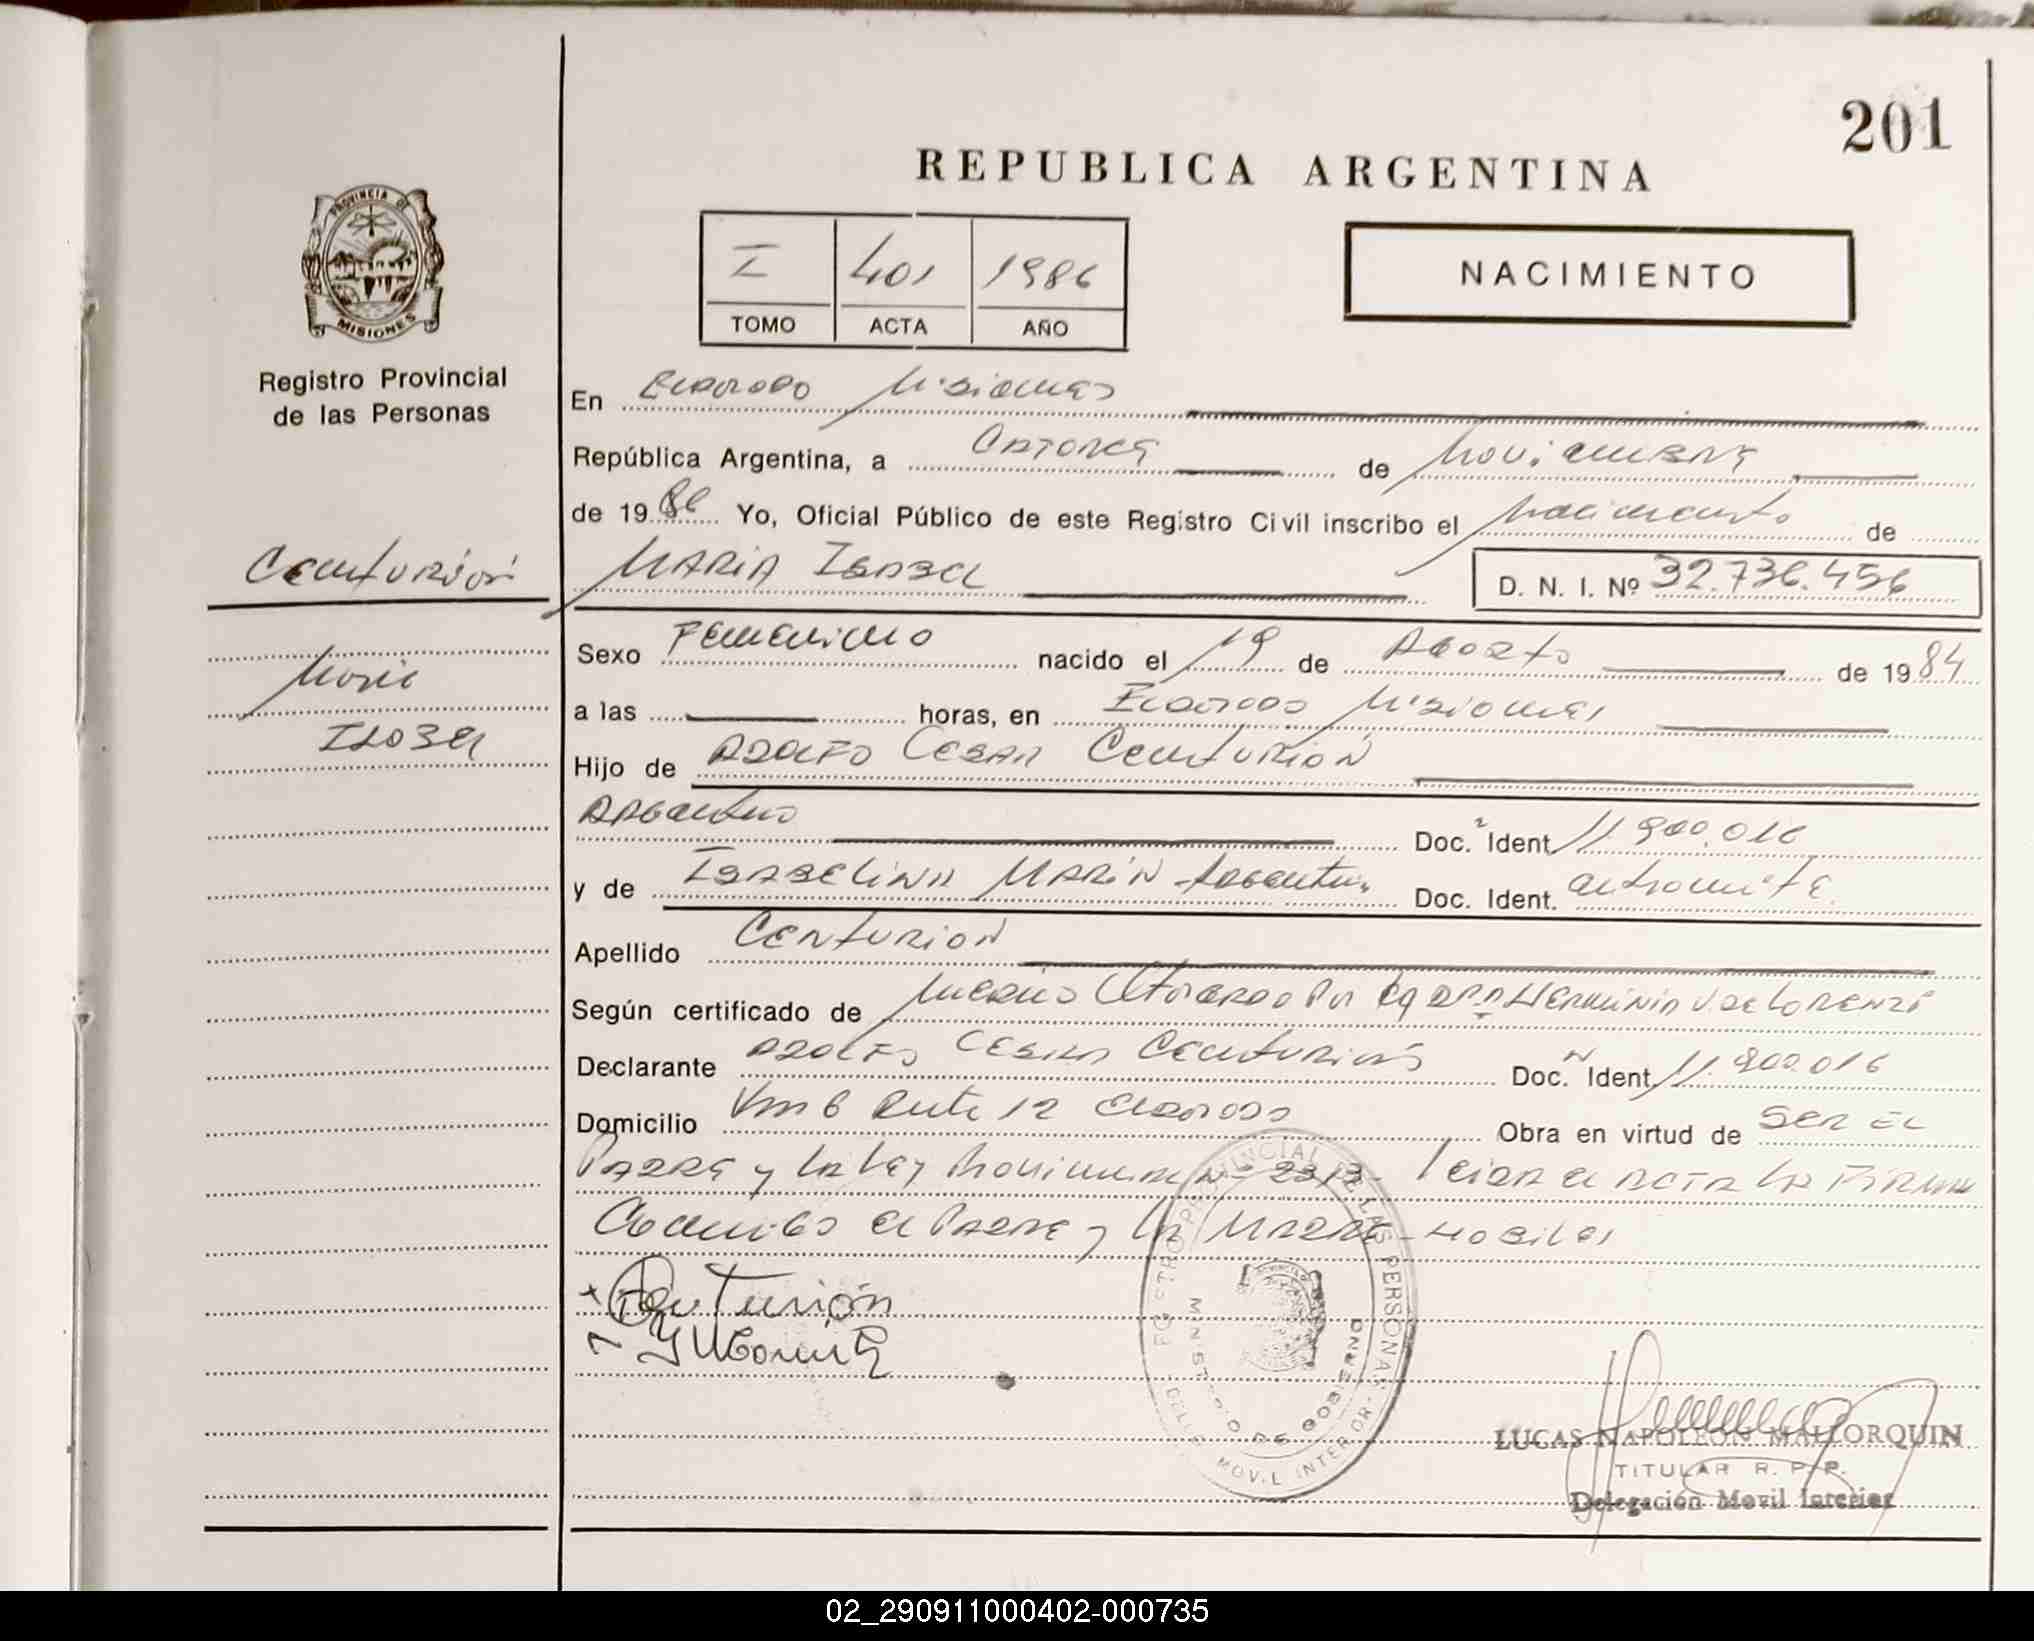 201
REPUBLICA ARGENTINA
PROVINCIA DE
MISIONES
Registro Provincial
de las Personas
I 401 1986
TOMO ACTA AÑO
NACIMIENTO
En Eldorado Misiones
República Argentina, a Catorce de Noviembre
de 1986 Yo, Oficial Público de este Registro Civil inscribo el Nacimiento de
Centurión MARIA ISABEL D. N. I. Nº 32.736.456
María
Isabel
Sexo Femenino nacido el 19 de Agosto de 1984
a las horas, en Eldorado Misiones
Hijo de ADOLFO CESAR Centurión
Argentino Doc. Ident 11.900.016
y de ISABELINA MARIN - Argentina Doc. Ident.
Apellido CENTURION
Según certificado de Médico Otorgado Por HERMINIA V. de LORENZI
Declarante ADOLFO CESAR Centurión Doc. Ident 11.900.016
Domicilio Km 6 Ruta 12 Eldorado Obra en virtud de SER EL
PADRE y la Ley Nº 2313 - Leida el ACTA LA FIRMAN
Conmigo el PADRE y la MADRE
Centurión
REGISTRO PROVINCIAL DE LAS PERSONAS
MINISTERIO DE GOBIERNO
DELEG. MOVIL INTERIOR
LUCAS NAPOLEON MALLORQUIN
TITULAR R. P. P.
Delegación Movil Interior
02_290911000402-000735